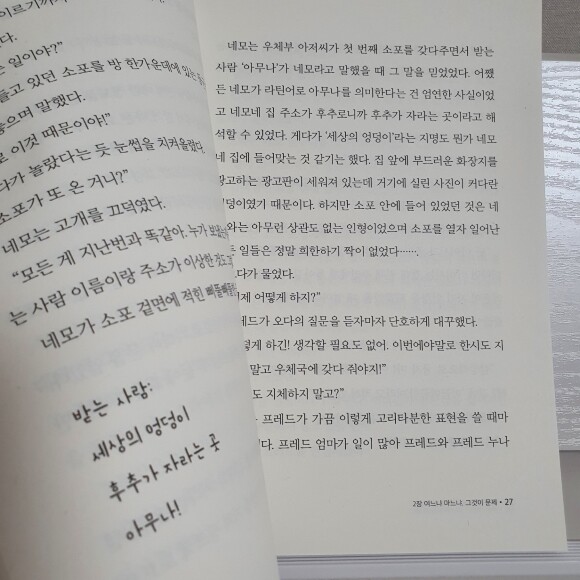 이르기까지
다.
일이야?"
들고 있던 소포를 방 한가운데에 있는
놓으며 말했다.
로 이것 때문이야!"
다가 놀랐다는 듯 눈썹을 치켜올렸다.
소포가 또 온 거니?"
네모는 고개를 끄덕였다.
"모든 게 지난번과 똑같아. 누가
는 사람 이름이랑 주소가 이상한 것도
네모가 소포 겉면에 적힌
받는 사람:
세상의 엉덩이
후추가 자라는 곳
아무나!
네모는 우체부 아저씨가 첫 번째 소포를 갖다주면서 받는
사람 '아무나'가 네모라고 말했을 때 그 말을 믿었었다. 어쨌
든 네모가 라틴어로 아무나를 의미한다는 건 엄연한 사실이었
고 네모네 집 주소가 후추로니까 후추가 자라는 곳이라고 해
석할 수 있었다. 게다가 '세상의 엉덩이'라는 지명도 뭔가 네모
네 집에 들어맞는 것 같기는 했다. 집 앞에 부드러운 화장지를
광고하는 광고판이 세워져 있는데 거기에 실린 사진이 커다란
엉덩이었기 때문이다. 하지만 소포 안에 들어 있었던 것은 네
와는 아무런 상관도 없는 인형이었으며 소포를 열자 일어난
일들은 정말 희한하기 짝이 없었다…….
다가 물었다.
제 어떻게 하지?"
레드가 오다의 질문을 듣자마자 단호하게 대꾸했다.
떻게 하긴! 생각할 필요도 없어. 이번에야말로 한시도 지
말고 우체국에 갖다 줘야지!"
도 지체하지 말고?"
프레드가 가끔 이렇게 고리타분한 표현을 쓸 때마
다. 프레드 엄마가 일이 많아 프레드와 프레드 누나
2장 여느냐 마느냐, 그것이 문제 • 27